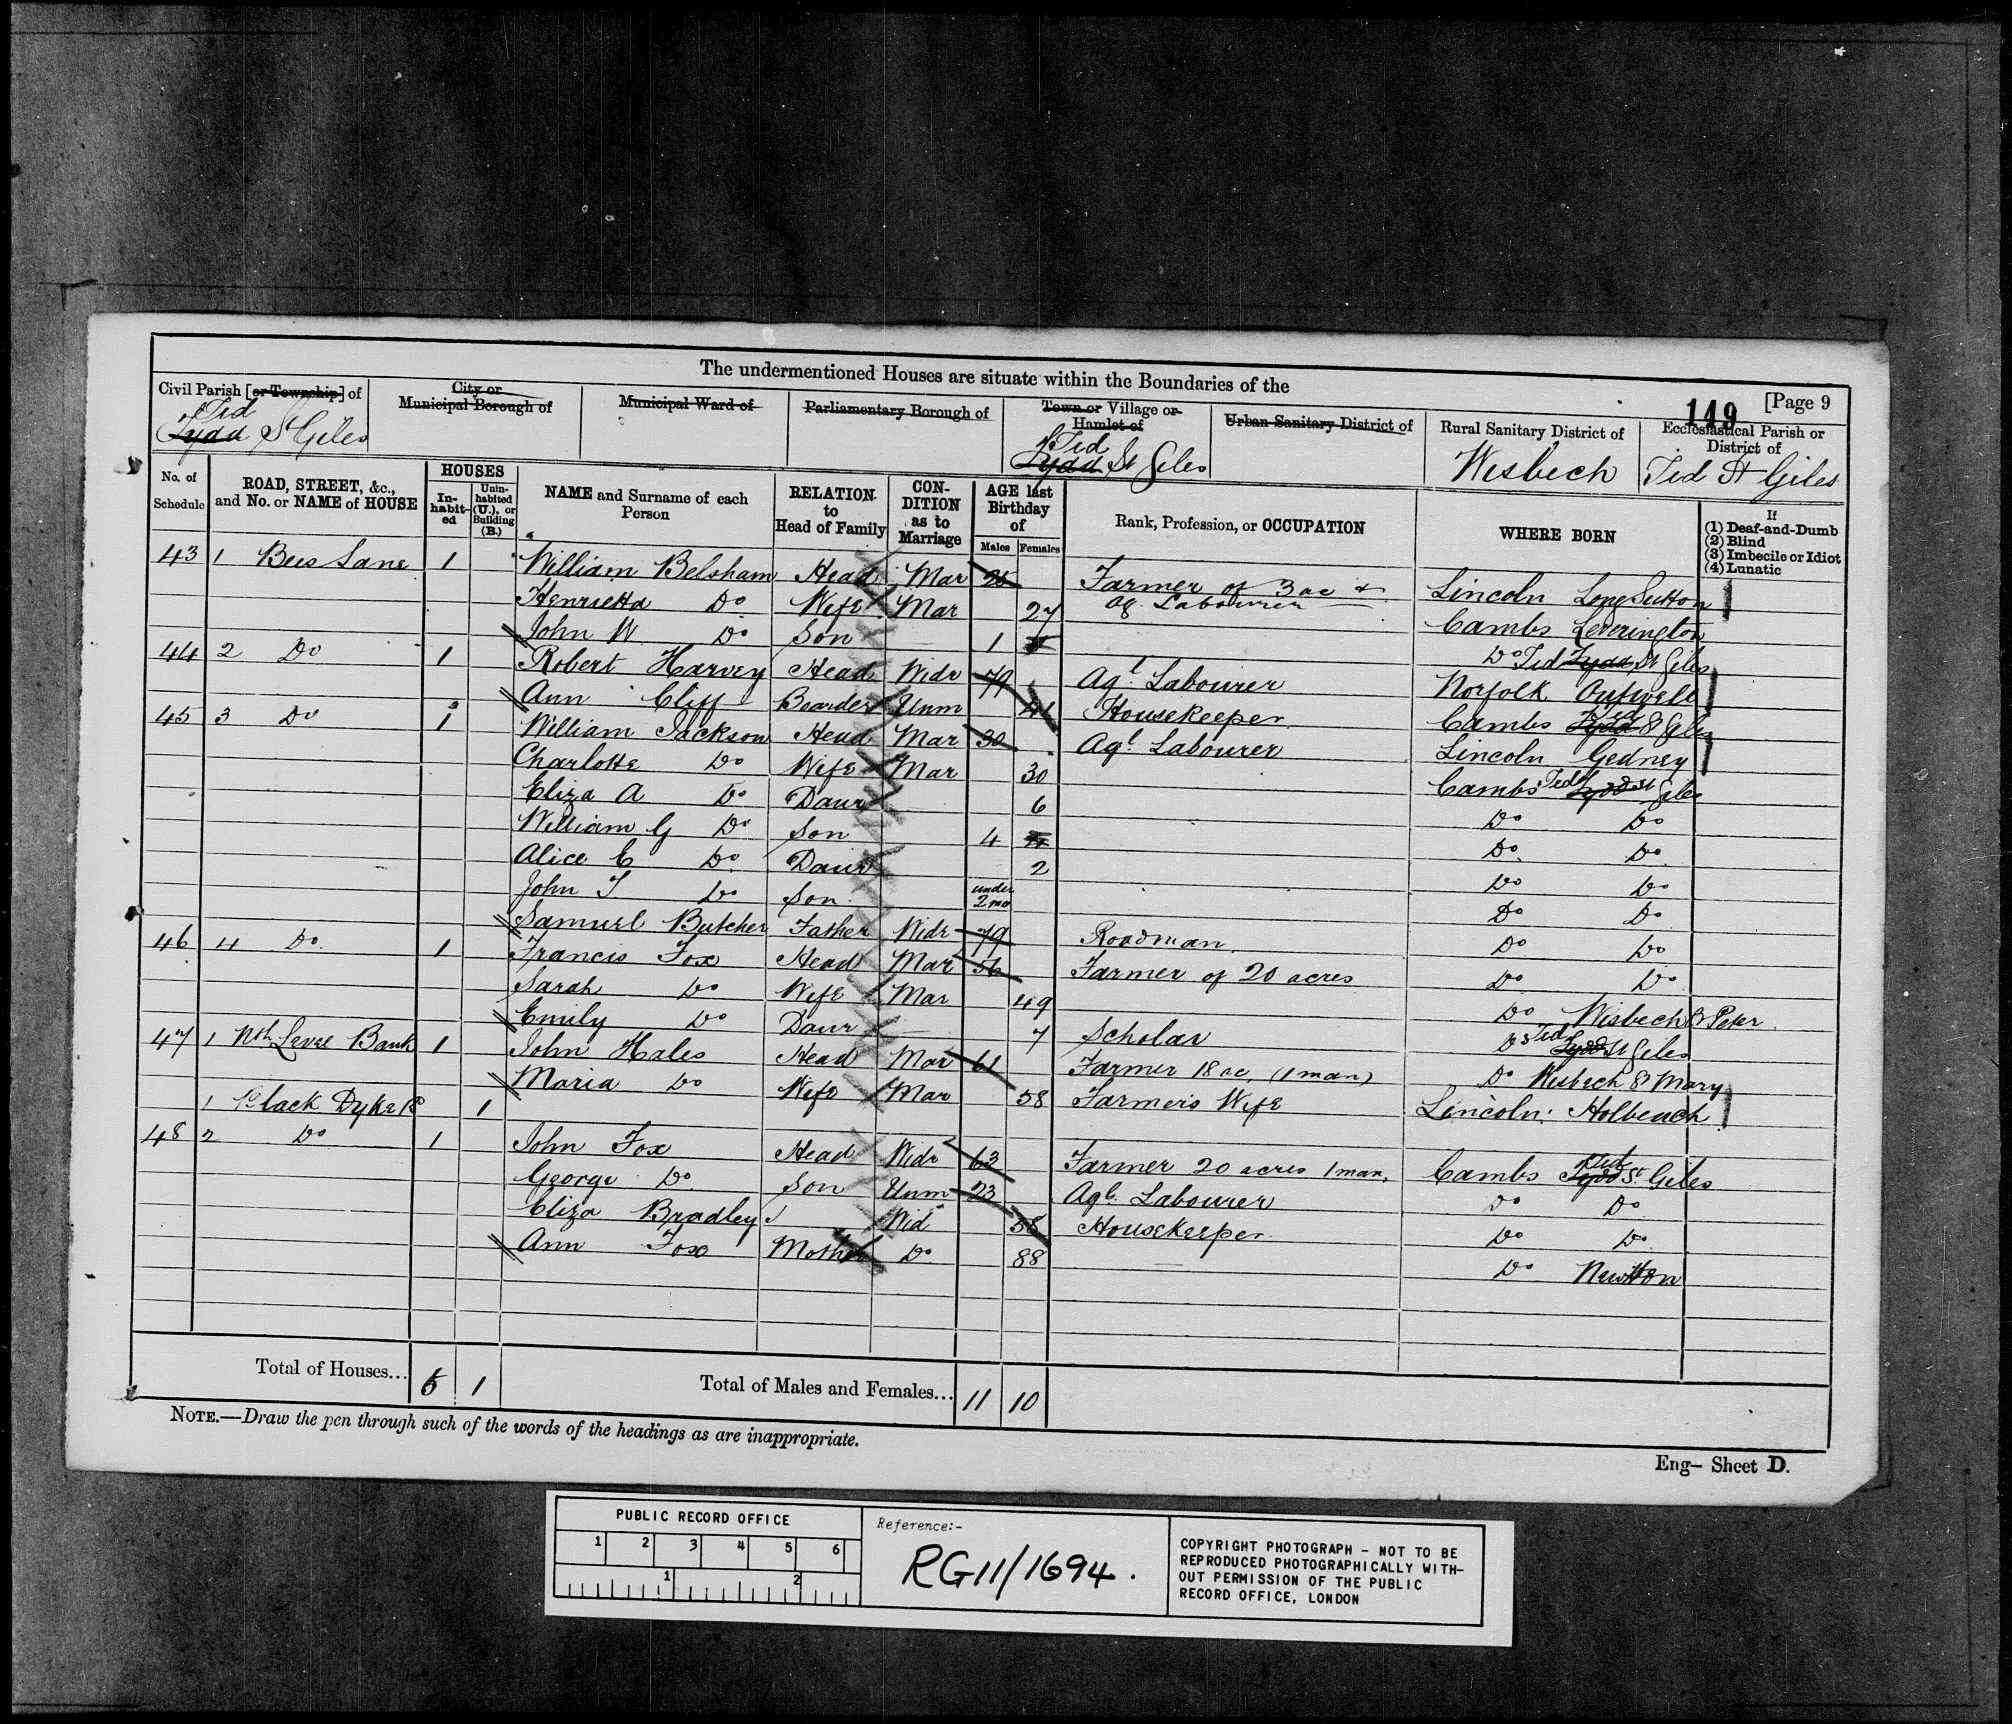 The undermentioned Houses are situate within the Boundaries of the
149 [Page 9
Civil Parish [or Township] of
Tid
Tydd St Giles
City or
Municipal Borough of
Municipal Ward of
Parliamentary Borough of
Town or Village or
Hamlet of
Tid
Tydd St Giles
Urban Sanitary District of
Rural Sanitary District of
Wisbech
Ecclesiastical Parish or
District of
Tid St Giles
No. of
Schedule
ROAD, STREET, &c.,
and No. or NAME of HOUSE
HOUSES
In-
habit-
ed
Unin-
habited
(U.), or
Building
(B.)
NAME and Surname of each
Person
RELATION
to
Head of Family
CON-
DITION
as to
Marriage
AGE last
Birthday
of
Males Females
Rank, Profession, or OCCUPATION
WHERE BORN
If
(1) Deaf-and-Dumb
(2) Blind
(3) Imbecile or Idiot
(4) Lunatic
43 1 Bees Lane 1 William Belsham Head Mar 25 Farmer of 3 ac & Ag Labourer Lincoln Long Sutton
Henrietta Do Wife Mar 27 Cambs Leverington
John W Do Son 1 Do Tid Tydd St Giles
44 2 Do 1 Robert Harvey Head Widr 79 Agl Labourer Norfolk Outwell
Ann Cliff Boarder Unm 41 Housekeeper Cambs Tydd St Giles
45 3 Do 1 William Jackson Head Mar 30 Agl Labourer Lincoln Gedney
Charlotte Do Wife Mar 30 Cambs Tid Tydd St Giles
Eliza A Do Daur 6 Do Do
William G Do Son 4 Do Do
Alice E Do Daur 2 Do Do
John T Do Son under 2 mo Do Do
Samuel Butcher Father Widr 79 Roadman Do Do
46 4 Do 1 Francis Fox Head Mar 56 Farmer of 20 acres Do Do
Sarah Do Wife Mar 49 Do Wisbech St Peter
Emily Do Daur 7 Scholar Do Tid Tydd St Giles
47 1 Nth Level Bank 1 John Hales Head Mar 61 Farmer 18 ac. (1 man) Do Wisbech St Mary
Maria Do Wife Mar 58 Farmers Wife Lincoln Holbeach
1 Black Dyke 1
48 2 Do 1 John Fox Head Widr 63 Farmer 20 acres 1 man, Cambs Tid Tydd St Giles
George Do Son Unm 23 Agl Labourer Do Do
Eliza Bradley Wid 58 Housekeeper Do Do
Ann Fox Mother Do 88 Do Newton
Total of Houses... 6 1 Total of Males and Females... 11 10
NOTE.—Draw the pen through such of the words of the headings as are inappropriate.
Eng— Sheet D.
PUBLIC RECORD OFFICE
1 2 3 4 5 6
1 2
Reference:-
RG11/1694.
COPYRIGHT PHOTOGRAPH - NOT TO BE
REPRODUCED PHOTOGRAPHICALLY WITH-
OUT PERMISSION OF THE PUBLIC
RECORD OFFICE, LONDON